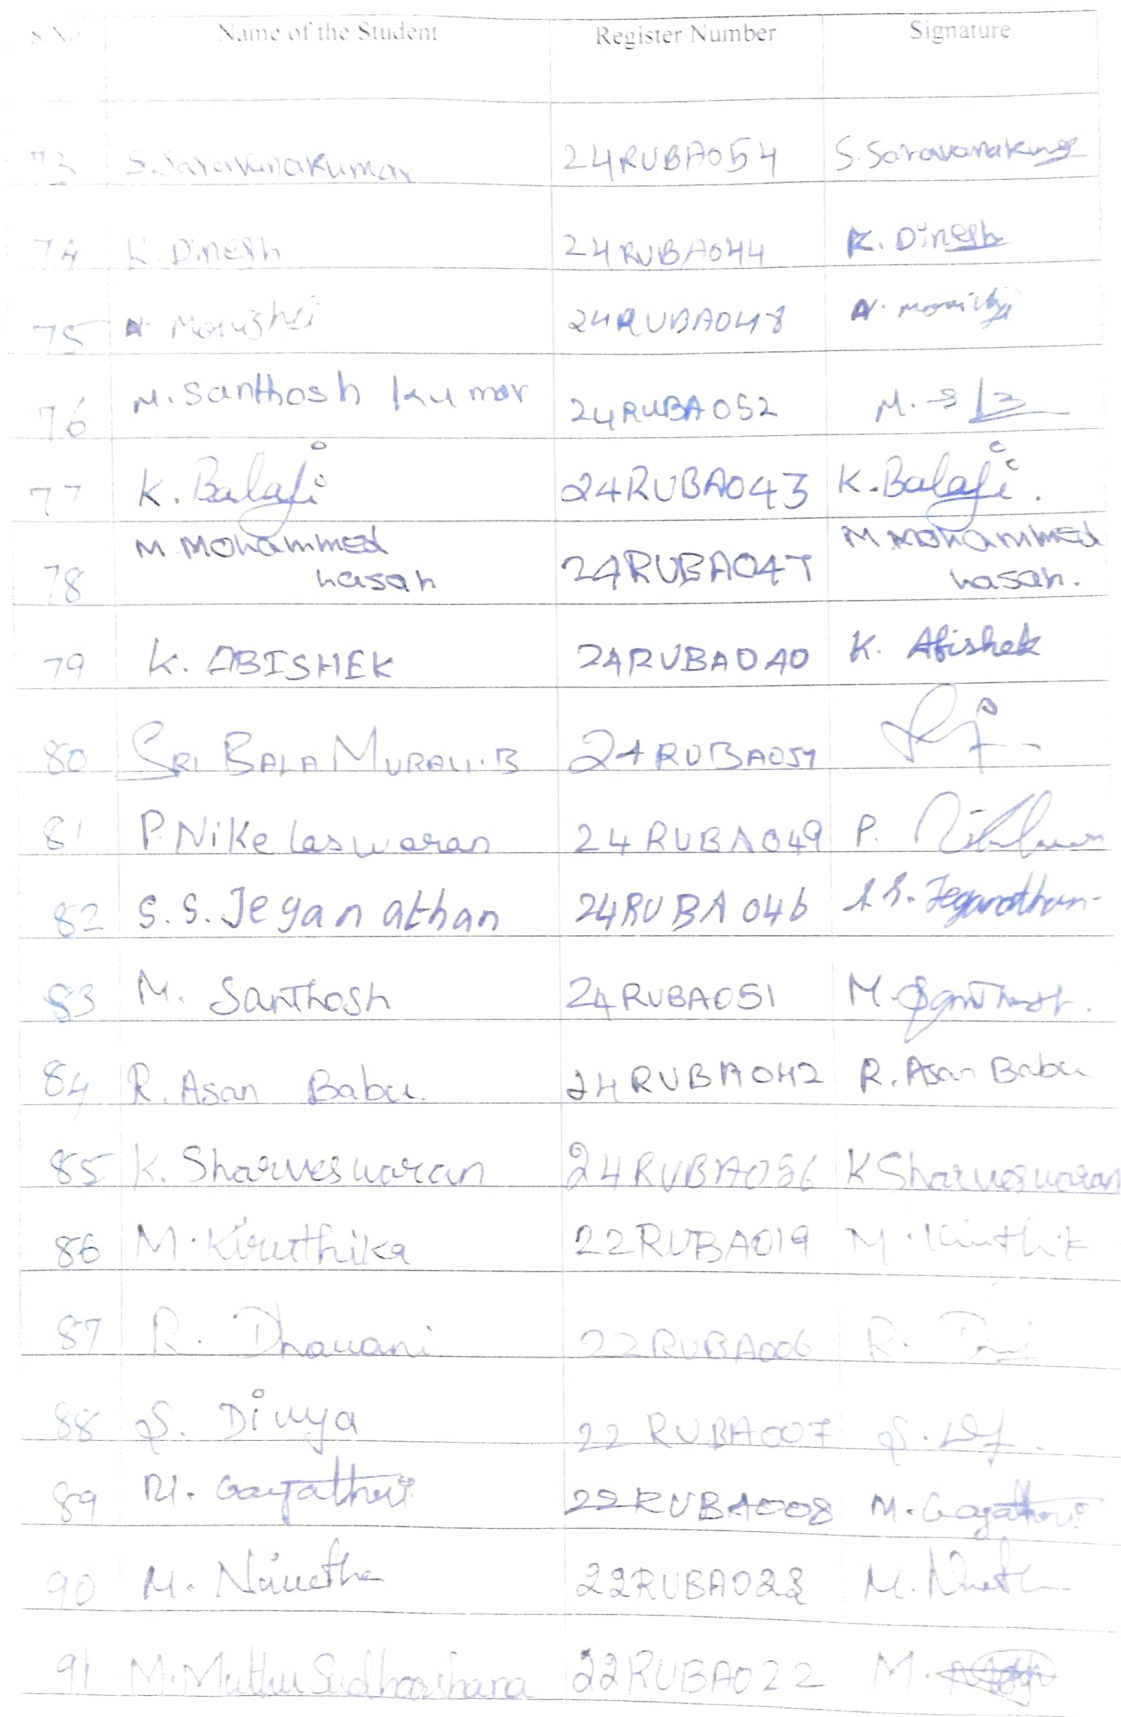 S.No Name of the Student Register Number Signature
73 S.Saravanakumar 24RUBA054 S.Saravanakumar
74 K Dinesh 24RUBA044 K. Dinesh
75 N. 24RUBA048 N.
76 M. Santhosh Kumar 24RUBA052 M.
77 K. Balaji 24RUBA043 K.Balaji.
78 M Mohammed 24RUBA047 M Mohammed
hasan hasan.
79 K. ABISHEK 24RUBA040 K. Abishek
80 SRI BALA MURALI.B 24RUBA057
81 P.Nikelaswaran 24RUBA049 P.
82 S.S.Jeganathan 24RUBA046 S.S.Jeganathan
83 M. Santhosh 24RUBA051 M.Santhosh.
84 R. Asan Babu. 24RUBA042 R. Asan Babu
85 K. Sharveswaran 24RUBA056 K Sharveswaran
86 M.Kiruthika 22RUBA019 M.
87 R. Dhavani 22RUBA006 R.
88 S. Divya 22RUBA007 S.
89 M. Gayathri 22RUBA008 M.Gayathri
90 M. Nivetha 22RUBA023 M.
91 M.Muthu Sudharshana 22RUBA022 M.